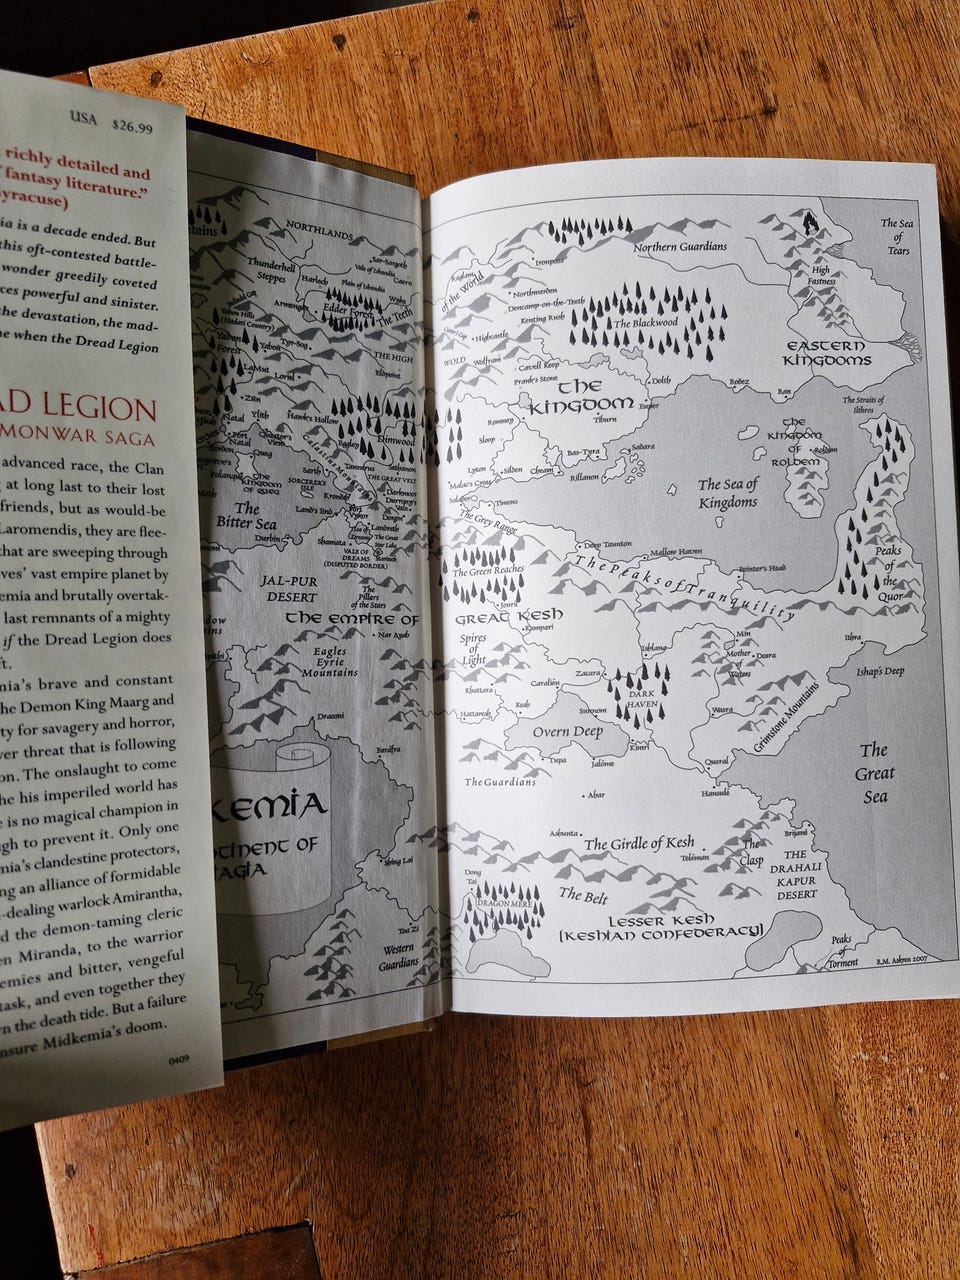 USA $26.99
richly detailed and
fantasy literature."
yracuse)
ia is a decade ended. But
this oft-contested battle-
wonder greedily coveted
ces powerful and sinister.
the devastation, the mad-
ne when the Dread Legion
AD LEGION
MONWAR SAGA
advanced race, the Clan
g at long last to their lost
friends, but as would-be
Laromendis, they are flee-
that are sweeping through
lves' vast empire planet by
emia and brutally overtak-
last remnants of a mighty
if the Dread Legion does
ft.
mia's brave and constant
he Demon King Maarg and
ty for savagery and horror,
ver threat that is following
on. The onslaught to come
he his imperiled world has
e is no magical champion in
gh to prevent it. Only one
mia's clandestine protectors,
ng an alliance of formidable
-dealing warlock Amirantha,
d the demon-taming cleric
en Miranda, to the warrior
emies and bitter, vengeful
task, and even together they
rn the death tide. But a failure
nsure Midkemia's doom.
0409
tains
NORTHLANDS
Sar-Sargoth
Vale of Isbandia
Thunderhell
Steppes
Harlech
Plain of Isbandia
Caern
Armengar
Edder Forest
The Teeth
Yabon Hills
(Hadati Country)
Yabon
Forest
Yabon
Tyr-Sog
THE HIGH
LaMut
Loriel
Zün
Ylith
Hawk's Hollow
Natal
Port
Natal
Questor's
View
Eggley
Dimwood
Calastius Mountains
Bordon
Queg
THE
KINGDOM
OF QUEG
Sarth
Tannerus
Sethanon
THE GREAT VELT
SORCERER'S
ISLE
Krondor
Darkmoor
Land's End
The
Bitter Sea
Durbin
Shamata
Landreth
VALE OF
DREAMS
(DISPUTED BORDER)
JAL-PUR
DESERT
The
Pillars
of the Stars
THE EMPIRE OF
Nar Ayab
Eagles
Eyrie
Mountains
Draconi
Farafra
KEMIA
TINENT OF
AGIA
Shing Lai
Tao Zi
Western
Guardians
Northern Guardians
The Sea
of
Tears
High
Fastness
of the World
Ironpass
Northwarden
Dencamp-on-the-Teeth
Kenting Rush
The Blackwood
Highcastle
WOLD
Wolfram
Cavell Keep
Prank's Stone
EASTERN
KINGDOMS
THE
KINGDOM
Dolth
Rodez
Ran
The Straits of
Ithros
Tiburn
Romney
Sloop
Bas-Tyra
Sadara
THE
KINGDOM
OF
ROLDEM
Roldem
Lyton
Silden
Cheam
Rillanon
Malac's Cross
The Sea of
Kingdoms
Salador
Timons
The Grey Range
Deep Taunton
Mallow Haven
Pointer's Head
The Peaks of Tranquility
The Green Reaches
Peaks
of
the
Quor
Jonril
GREAT KESH
Kampari
Spires
of
Light
Min
Mother
of
Waters
Dosra
Ishlang
Ithra
Ishap's Deep
Zacara
Caralién
Khattara
DARK
HAVEN
Kesh
Hattarah
Sunnom
Wasra
Overn Deep
Kimri
Grimstone Mountains
Tupa
Jalöme
Queral
The Guardians
Hansulé
The
Great
Sea
Ahar
Ashunta
The Girdle of Kesh
Teléman
The
Clasp
Brijané
THE
DRAHALI
KAPUR
DESERT
Dong
Tai
DRAGON MERE
The Belt
LESSER KESH
[KESHIAN CONFEDERACY]
Peaks
of
Torment
R.M. Askren 2007